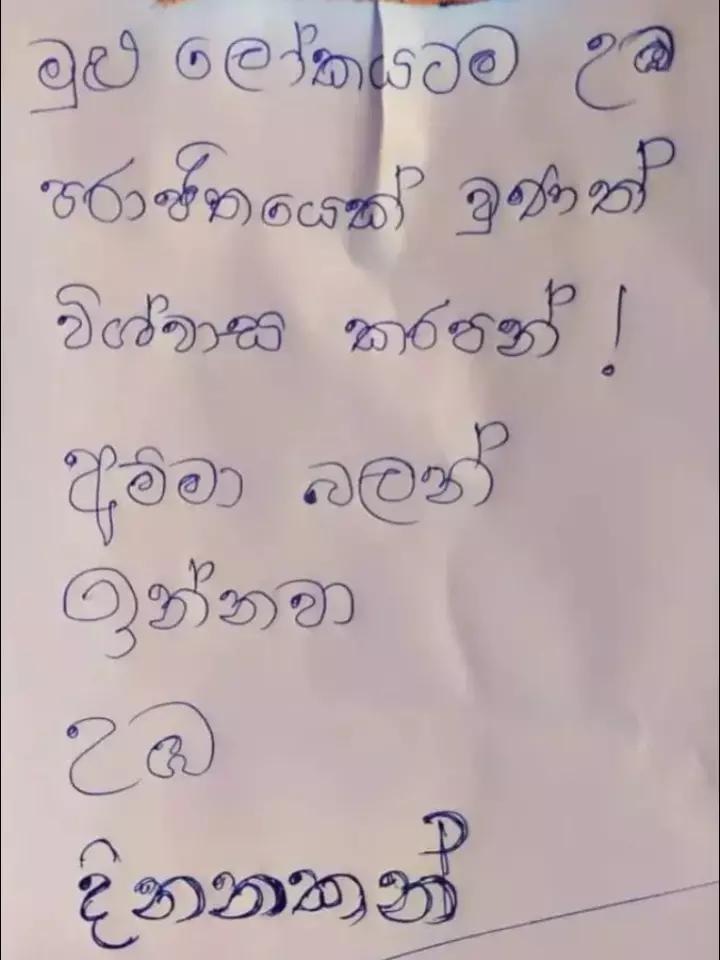 මුළු ලෝකයටම උඹ
පරාජිතයෙක් වුණත්
විශ්වාස කරපන් !
අම්මා බලන්
ඉන්නවා
උඹ
දිනනකන්